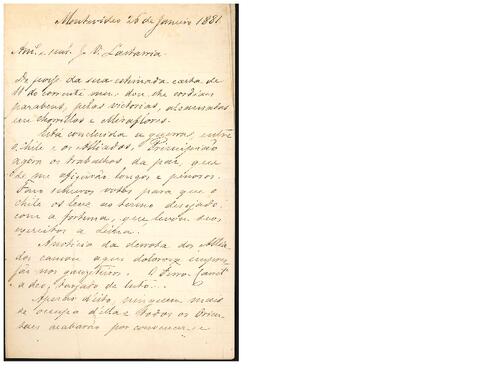 Montevideo 26 de Janeiro 1881
Am.º e snr. J. V. Lastarria
De posse da sua estimada carta de
11 do corrente mez, dou-lhe cordiaes
parabens, pelas victorias, alcansadas
em Chorrillos e Miraflores.
Está concluida a guerra, entre
o Chile e os Alliados; Principiarão
agora os trabalhos da paz, que
se me afigurão longos e penosos.
Faço sinceros votos para que o
Chile os leve ao termo desejado;
com a fortuna, que levou seus
exercitos a Lima.
A noticia da derrota dos Allia-
dos causou aqui dolorosa impres-
são nos
a deo, tarjado de luto...
Apezar disto, ninguem mais
se occupa d'elles. Todos os Orien-
taes acabarão por convencer-se